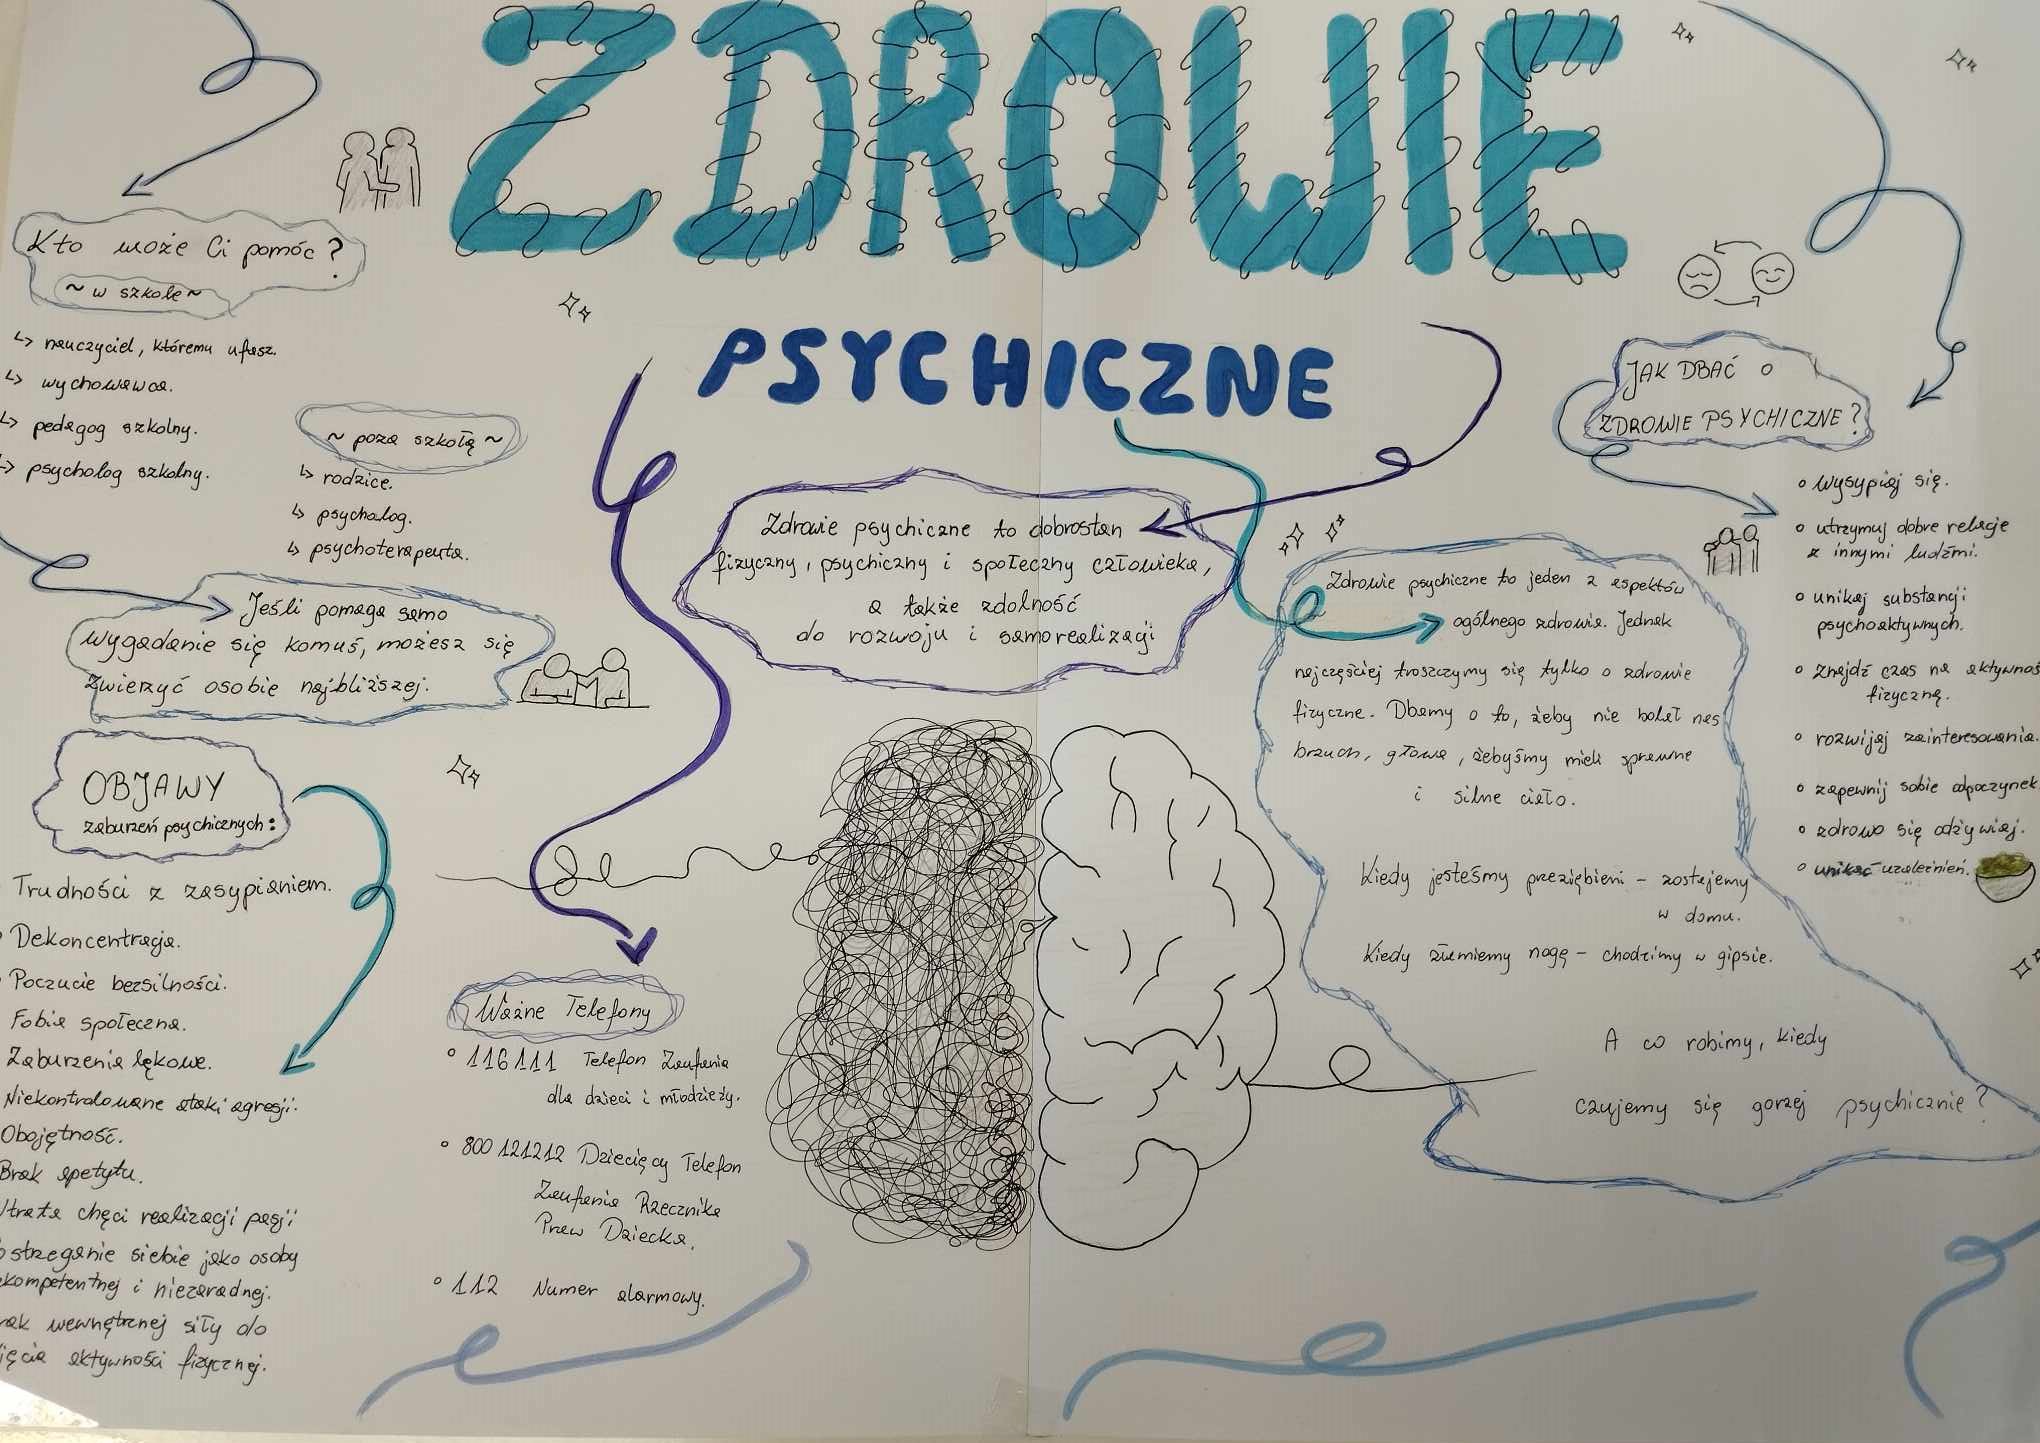 ZDROWIE
PSYCHICZNE
Kto może Ci pomóc?
~ w szkole ~
↳ nauczyciel, któremu ufasz.
↳ wychowawca.
↳ pedagog szkolny.
↳ psycholog szkolny.
~ poza szkołą ~
↳ rodzice.
↳ psycholog.
↳ psychoterapeuta.
Jeśli pomaga samo
wygadanie się komuś, możesz się
zwierzyć osobie najbliższej.
OBJAWY
zaburzeń psychicznych:
Trudności z zasypianiem.
Dekoncentracja.
Poczucie bezsilności.
Fobia społeczna.
Zaburzenia lękowe.
Niekontrolowane ataki agresji.
Obojętność.
Brak apetytu.
Utrata chęci realizacji pasji
strzeganie siebie jako osoby
kompetentnej i niezaradnej.
rak wewnętrznej siły do
jęcia aktywności fizycznej.
Ważne Telefony
° 116111 Telefon Zaufania
dla dzieci i młodzieży.
° 800 121212 Dziecięcy Telefon
Zaufania Rzecznika
Praw Dziecka.
° 112 Numer alarmowy.
Zdrowie psychiczne to dobrostan
fizyczny, psychiczny i społeczny człowieka,
a także zdolność
do rozwoju i samorealizacji
Zdrowie psychiczne to jeden z aspektów
ogólnego zdrowia. Jednak
najczęściej troszczymy się tylko o zdrowie
fizyczne. Dbamy o to, żeby nie bolał nas
brzuch, głowa, żebyśmy mieli sprawne
i silne ciało.
Kiedy jesteśmy przeziębieni - zostajemy
w domu.
Kiedy złamiemy nogę - chodzimy w gipsie.
A co robimy, kiedy
czujemy się gorzej psychicznie?
JAK DBAĆ o
ZDROWIE PSYCHICZNE?
° wysypiaj się.
° utrzymuj dobre relacje
z innymi ludźmi.
° unikaj substancji
psychoaktywnych.
° Znajdź czas na aktywnoś
fizyczną.
° rozwijaj zainteresowania.
° zapewnij sobie odpoczynek
° zdrowo się odżywiaj.
° unikać uzależnień.